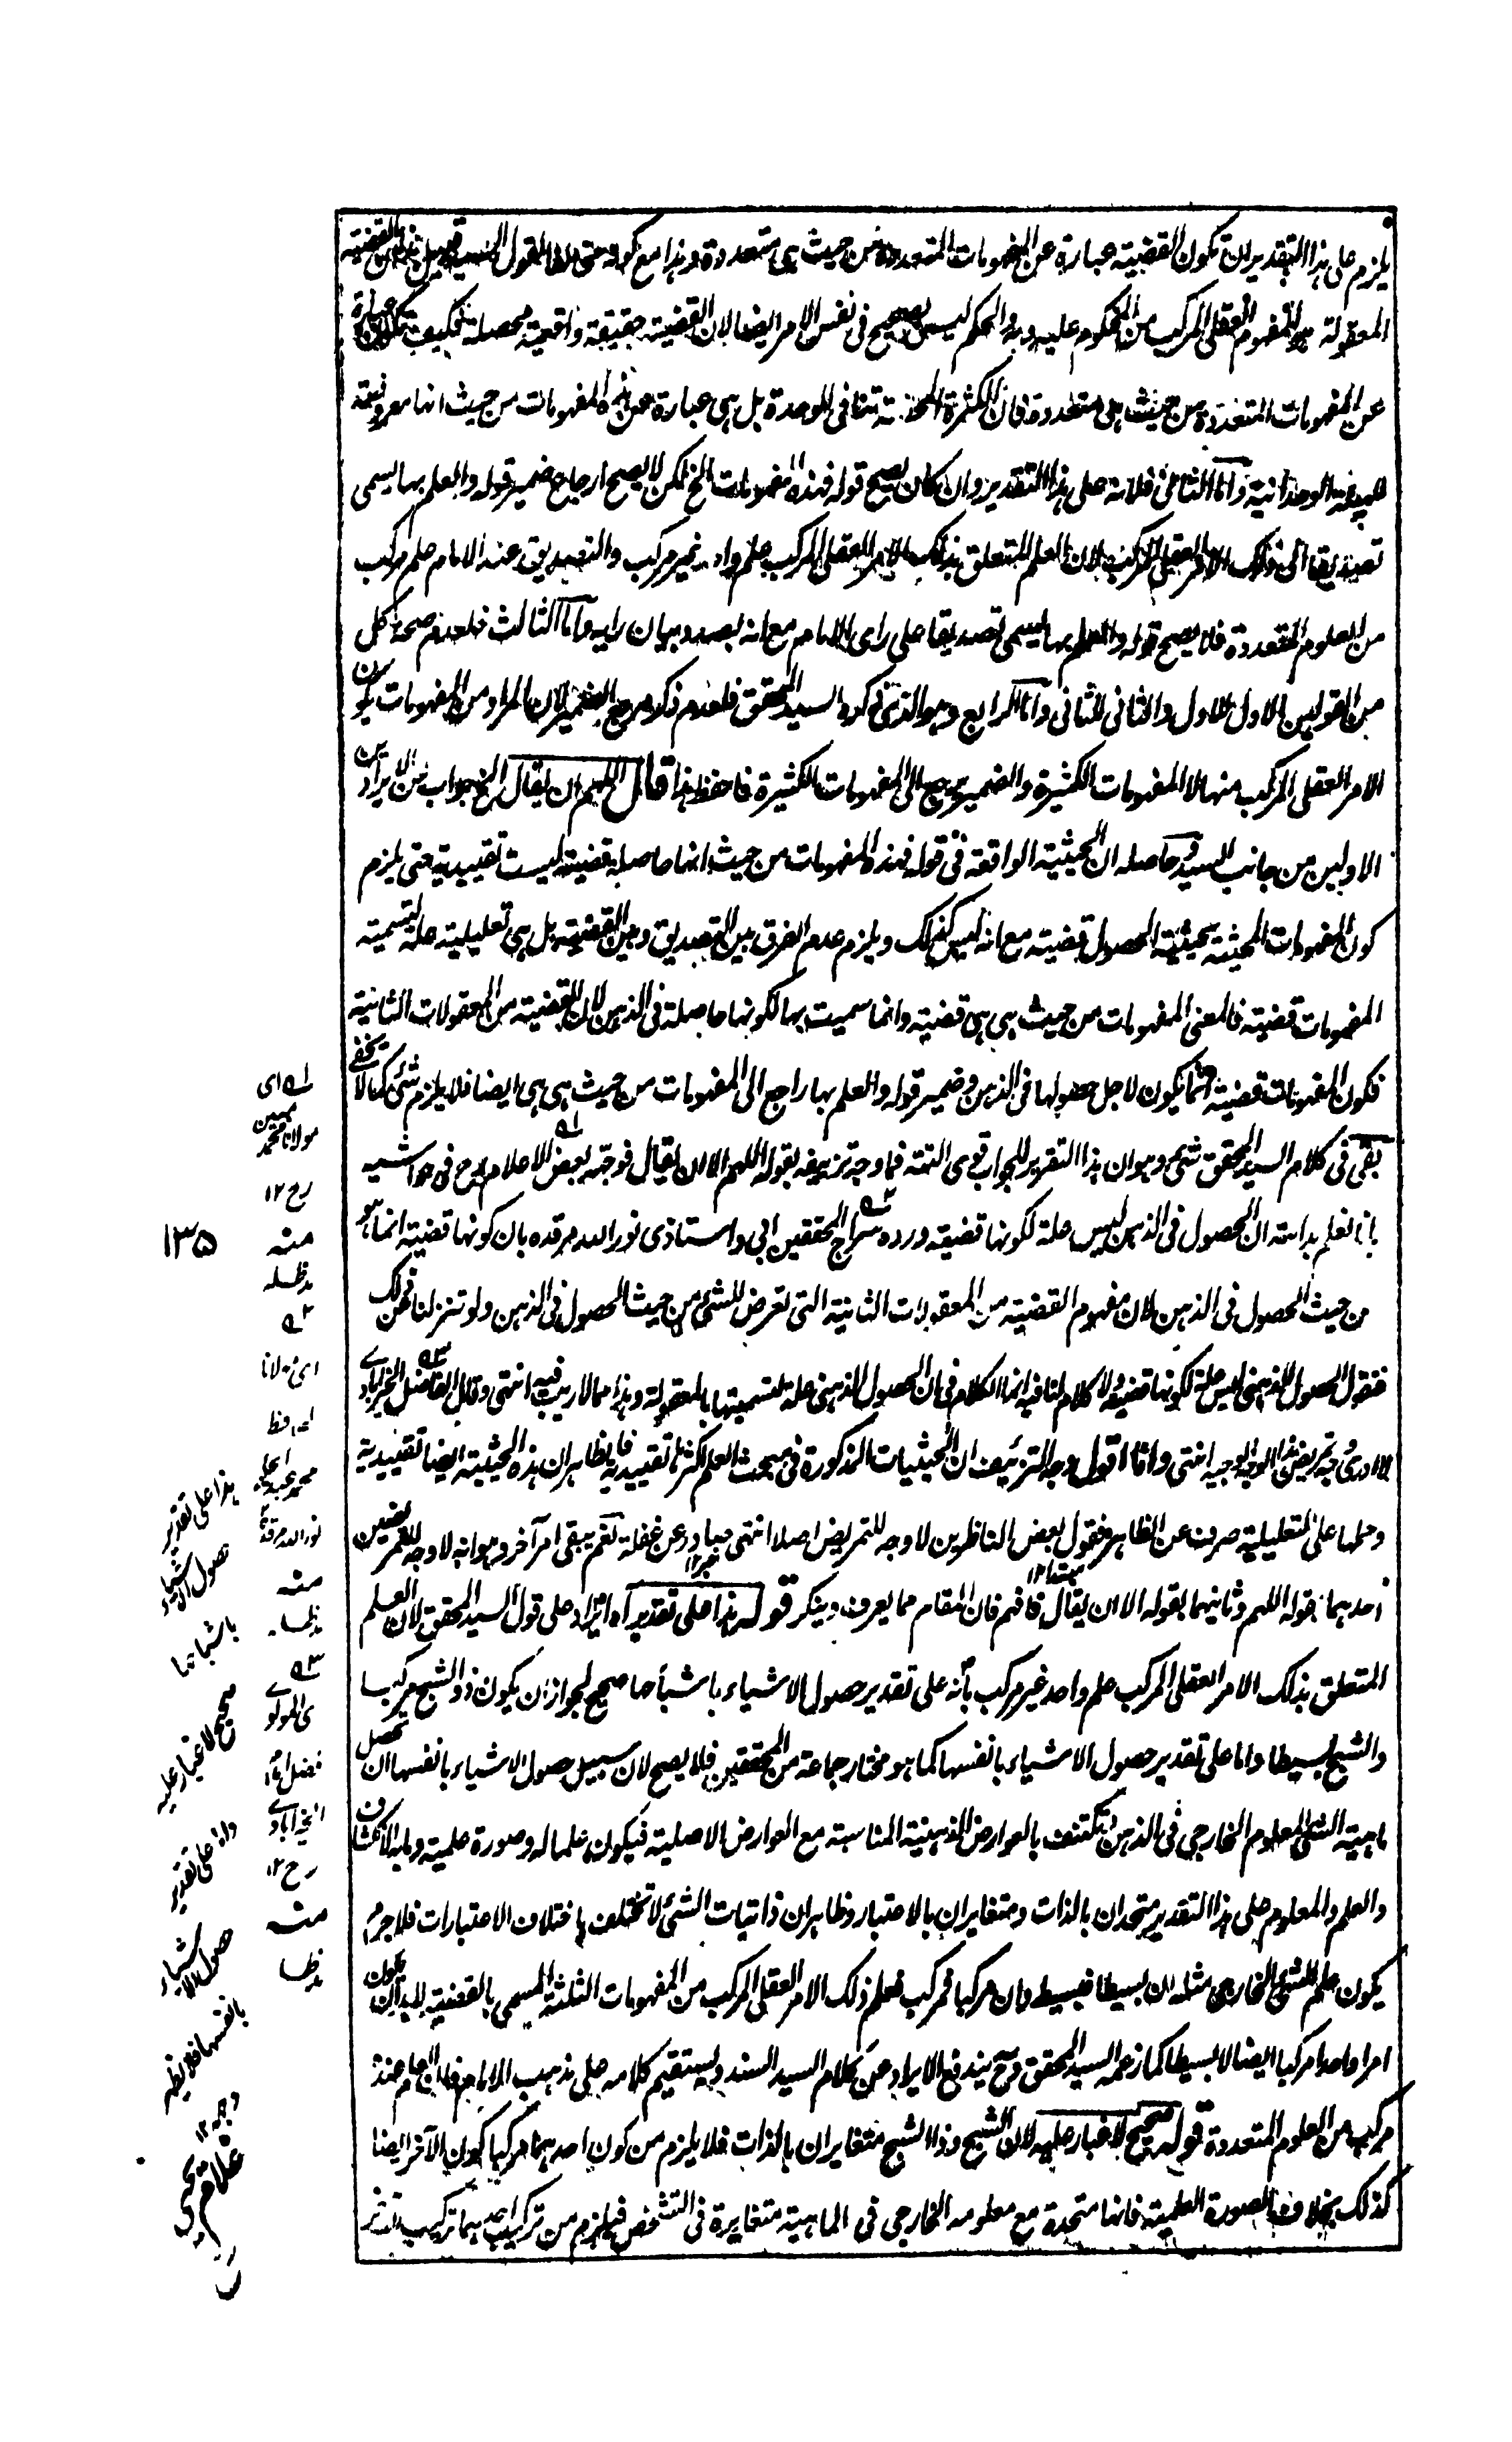 يلزم على هذا التقدير ان تكون القضية عبارة عن المفهومات المتعددة من حيث هى متعددة وهذا مع كونه
المعقولة هو المفهوم العقلى المركب من المحكوم عليه وبه والحكم ليس بصحيح فى نفس الامر ايضا لان القضية حقيقة واقعية محصلة فكيف تكون عبارة
عن المفهومات المتعددة من حيث هى متعددة فان الكثرة المحضة تنافى الوحدة بل هى عبارة عن هذه المفهومات من حيث انها معروضة
للهيئة الوحدانية واما الثانى فلانه على هذا التقدير وان كان يصح قوله فهذه المفهومات الخ لكن لا يصح ارجاع ضمير قوله والعلم بها يسمى
تصديقا الى ذلك الامر العقلى المركب لان العلم المتعلق بذلك الامر العقلى المركب علم واحد غير مركب والتصديق عند الامام علم مركب
من العلوم المتعددة فلا يصح قوله والعلم بها يسمى تصديقا على راى الامام مع انه بصدد بيان رايه واما الثالث فلعدم صحة كل
من القولين الاول للاول والثانى للثانى واما الرابع وهو الذى ذكره السيد المحقق فلعدم ذكر مرجع الضمير لان المراد من المفهومات يكون
الامر العقلى المركب منها لا المفهومات الكثيرة والضمير يرجع الى المفهومات الكثيرة فاحفظ هذا قال اللهم ان يقال الخ جواب عن الايرادين
الاولين من جانب السيد قد حاصله ان الحيثية الواقعة فى قوله فهذه المفهومات من حيث انها حاصلة قضية ليست تقييدية حتى يلزم
كون المفهومات المحيثة بحيثية الحصول قضية مع انه ليس كذلك ويلزم عدم الفرق بين التصديق وبين القضية بل هى تعليلية علة لتسمية
المفهومات قضية فالمعنى المفهومات من حيث هى هى قضية وانما سميت بها لكونها حاصلة فى الذهن لان القضية من المعقولات الثانية
فكون المفهومات قضية انما يكون لاجل حصولها فى الذهن وضمير قوله والعلم بها راجع الى المفهومات من حيث هى هى ايضا فلا يلزم شئ كما لا يخفى
بقى فى كلام السيد المحقق شئ وهو ان هذا التقرير للجواب قوى المتنة فما وجه تزييفه بقوله اللهم الا ان يقال فوجه بعض الاعلام رح فى حواشيه
بانا نعلم بداهة ان الحصول فى الذهن ليس علة لكونها قضية ورده سراج المحققين ابى واستاذى نور الله مرقده بان كونها قضية انما هو
من حيث الحصول فى الذهن لان مفهوم القضية من المعقولات الثانية التى تعرض للشئ من حيث الحصول فى الذهن ولو تنزلنا عن ذلك
فنقول الحصول الذهنى ليس علة لكونها قضية لا كلام لنا فيه انما الكلام فى ان الحصول الذهنى علة لتسميتها بالمعقولة وهذا مما لا ريب فيه انتهى وقال الفاضل الخيرآبادى
لا ادرى وجه تمريض هذا الوجه الوجيه انتهى وانا اقول وجه التزئيف ان الحيثيات المذكورة فى مبحث العلم اكثرها تقييدية فالظاهر ان هذه الحيثية ايضا تقييدية
وحملها على التعليلية صرف عن الظاهر فقول بعض الناظرين لا وجه للتمريض اصلا انتهى صادر عن غفلة نعم يبقى امر آخر وهو انه لا وجه للتمريضين
احدهما بقوله اللهم وثانيهما بقوله الا ان يقال فافهم فان المقام مما يعرف وينكر قوله هذا على تقدير اه ايراد على قول السيد المحقق لان العلم
المتعلق بذلك الامر العقلى المركب علم واحد غير مركب بأنه على تقدير حصول الاشياء باشباحها صحيح لجواز ان يكون ذو الشبح مركبا
والشبح بسيطا واما على تقدير حصول الاشياء بانفسها كما هو مختار جماعة من المحققين فلا يصح لان سبيل حصول الاشياء بانفسها ان تحصل
ماهية الشئ المعلوم الخارجى فى الذهن وتكتنف بالعوارض الذهنية المناسبة مع العوارض الاصلية فيكون علما له وصورة علمية وما به الانكشاف
والعلم والمعلوم على هذا التقدير متحدان بالذات ومتغايران بالاعتبار وظاهر ان ذاتيات الشئ لا تختلف باختلاف الاعتبارات فلا جرم
يكون علم الشئ الخارجى مثله ان بسيطا فبسيط وان مركبا فمركب فعلم ذلك الامر العقلى المركب من المفهومات الثلثة المسمى بالقضية لا بد ان يكون
امرا واحدا مركبا ايضا لا بسيطا كما زعمه السيد المحقق وح يندفع الايراد عن كلام السيد السند ويستقيم كلامه على مذهب الامام فان العلم عنده
مركب من العلوم المتعددة قوله صحيح لا غبار عليه لان الشبح وذا الشبح متغايران بالذات فلا يلزم من كون احدهما مركبا كون الآخر ايضا
كذلك بخلاف الصورة العلمية فانها متحدة مع معلومه الخارجى فى الماهية متغايرة فى التشخص فيلزم من تركيب احدهما تركيب الآخر
له اى
مولانا محمد مبين
رح ١٢
منه
مدظله
١٣٥
٢
اى مولانا
الحافظ
محمد عبد الحليم
نور الله مرقده
منه
مدظله
٣
اى المولوى
فضل امام
الخيرآبادى
رح ١٢
منه
مدظله
هذا على تقدير
حصول الاشياء
باشباحها
صحيح لا غبار عليه
واما على تقدير
حصول الاشياء
بانفسها فلا يظهر
وجهه ١٢
غلام يحيى